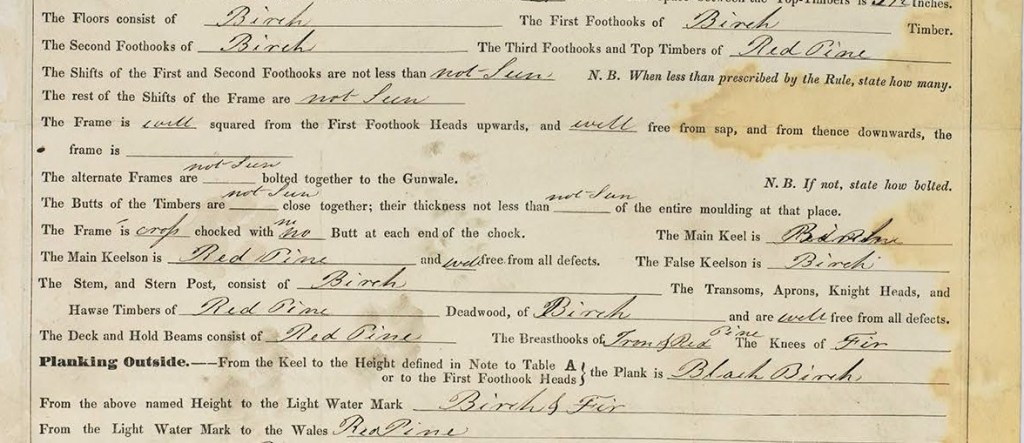 space between the Top-Timbers is Inches.
The Floors consist of Birch The First Foothooks of Birch Timber.
The Second Foothooks of Birch The Third Foothooks and Top Timbers of Red Pine
The Shifts of the First and Second Foothooks are not less than not Seen N. B. When less than prescribed by the Rule, state how many.
The rest of the Shifts of the Frame are not Seen
The Frame is well squared from the First Foothook Heads upwards, and well free from sap, and from thence downwards, the
frame is
The alternate Frames are not Seen bolted together to the Gunwale. N. B. If not, state how bolted.
The Butts of the Timbers are not Seen close together; their thickness not less than not Seen of the entire moulding at that place.
The Frame is crop chocked with no Butt at each end of the chock. The Main Keel is
The Main Keelson is Red Pine and well free from all defects. The False Keelson is Birch
The Stem, and Stern Post, consist of Birch The Transoms, Aprons, Knight Heads, and
Hawse Timbers of Red Pine Deadwood, of Birch and are well free from all defects.
The Deck and Hold Beams consist of Red Pine The Breasthooks of Iron & Red Pine The Knees of Fir
Planking Outside.—From the Keel to the Height defined in Note to Table A } the Plank is Black Birch
or to the First Foothook Heads
From the above named Height to the Light Water Mark Birch & Fir
From the Light Water Mark to the Wales Red Pine